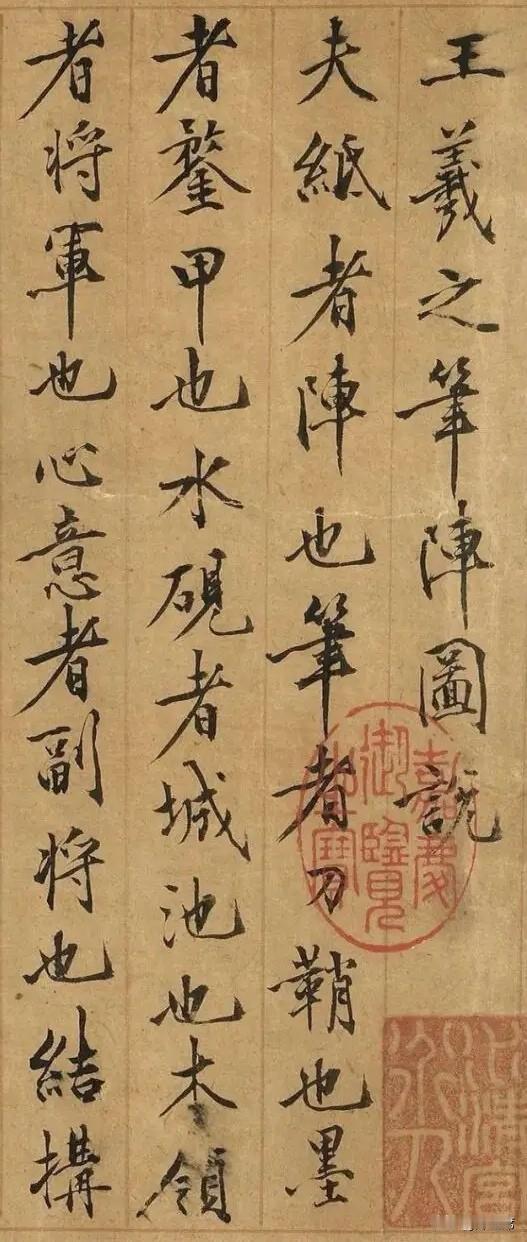 王羲之筆陣圖説
夫紙者陣也筆者刀鞘也墨
者鍪甲也水硯者城池也本領
者将軍也心意者副将也結構
嘉慶御覽之寶